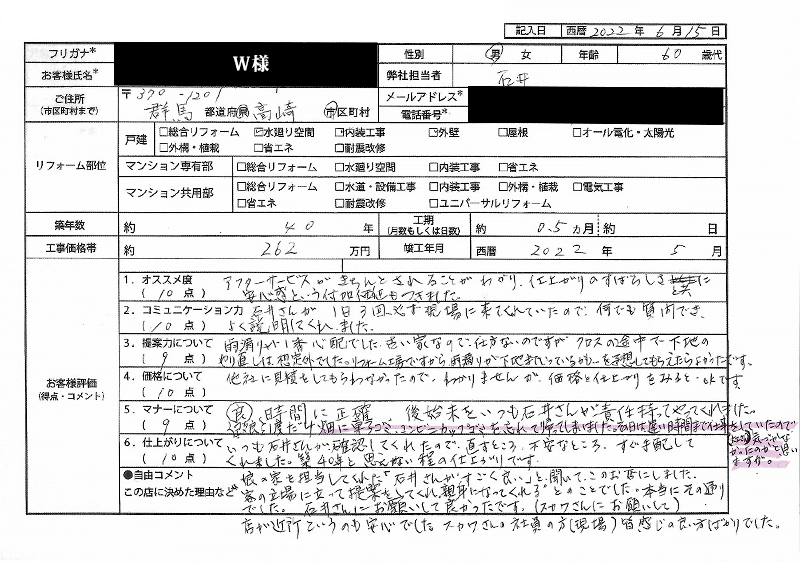 記入日 西暦 2022 年 6 月 15 日
フリガナ* W様 性別 男 女 年齢 60 歳代
お客様氏名* 弊社担当者 石井
ご住所 (市区町村まで) 〒370-1201 メールアドレス*
群馬 都道府県 高崎 市区町村 電話番号*
リフォーム部位 戸建 □総合リフォーム ☑水廻り空間 ☑内装工事 □外壁 □屋根 □オール電化・太陽光
□外構・植栽 □省エネ □耐震改修
マンション専有部 □総合リフォーム □水廻り空間 □内装工事 □省エネ
マンション共用部 □総合リフォーム □水道・設備工事 □内装工事 □外構・植栽 □電気工事
□省エネ □耐震改修 □ユニバーサルリフォーム
築年数 約 40 年 工期 (月数もしくは日数) 約 0.5 カ月 約 日
工事価格帯 約 262 万円 竣工年月 西暦 2022 年 5 月
お客様評価 (得点・コメント)
1．オススメ度 ( 10 点 ) アフターサービスがきちんとされることがわかり、仕上がりのすばらしさに
安心感という付加価値もつきました。
2．コミュニケーション力 ( 10 点 ) 石井さんが1日3回必ず現場に来てくれていたので、何でも質問でき、
よく説明してくれました。
3．提案力について ( 9 点 ) 雨漏りが一番心配でした。古い家なので、仕方ないのですがクロスの途中で下地の
やり直しは想定外でした。リフォーム工事ですから雨漏りが下地まで
を予想してもらえたらよかったです。
4．価格について ( 10 点 ) 他社に見積をしてもらわなかったので、わかりませんが、価格と仕上がりをみるとokです。
5．マナーについて ( 9 点 ) 良、時間に正確 後始末をいつも石井さんが責任持ってやってくれました。
1度だけ畑に コンビニの を忘れて帰ってしまいました。当日は遅い時間まで仕事をしていたので
かったのかと思い
ますが。
6．仕上がりについて ( 10 点 ) いつも石井さんが確認してくれたので、直すところ、不安なところ、すぐ手配して
くれました。築40年と思えない程の仕上がりです。
●自由コメント この店に決めた理由など* 娘の家を担当してくれた"石井さんがすごく良い"と聞いて、このお店にしました。
客の立場に立って提案をしてくれ、親身になってくれるとのことでした。本当にその通り
でした。石井さんにお願いして良かったです。(スカワさんにお願いして)
店が近所というのも安心でした スカワさんの社員の方(現場)皆感じの良い方ばかりでした。